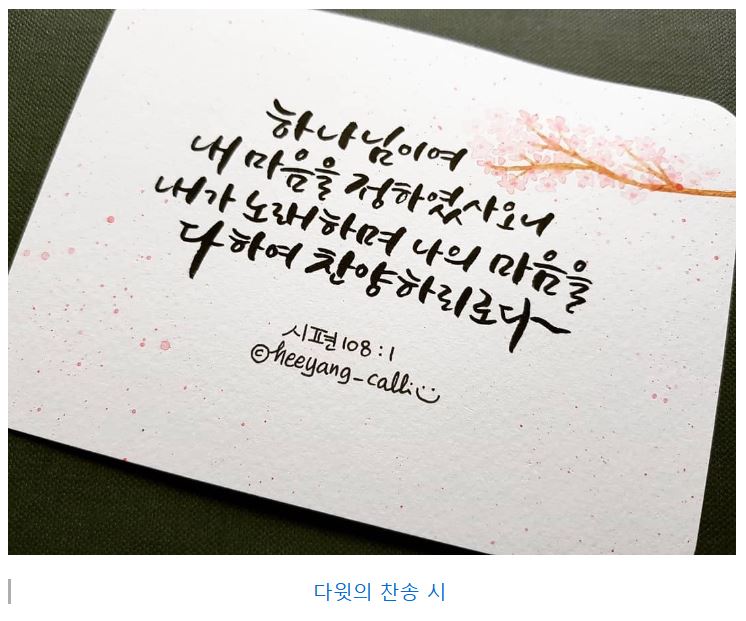 하나님이여
내 마음을 정하였사오니
내가 노래하며 나의 마음을
다하여 찬양하리로다~
시편 108 : 1
©heeyang_calli
다윗의 찬송 시